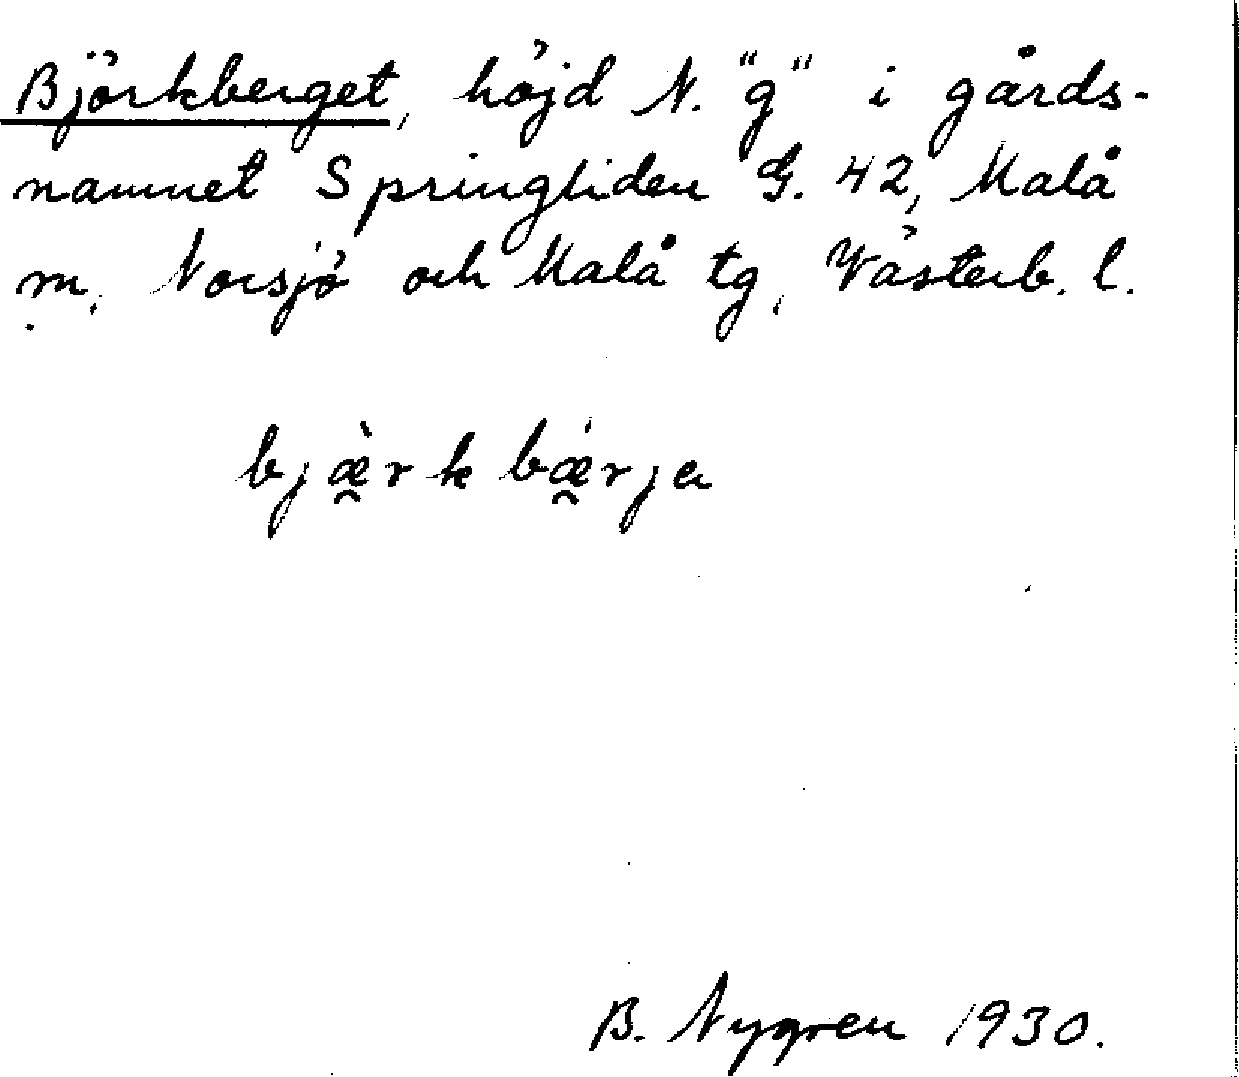 Björkberget, höjd N. "g" i gårds-
namnet Springliden G. 42, Malå
m, Norsjö och Malå tg, Västerb. l.
bjæ̀rkbǽrja
B. Nygren 1930.